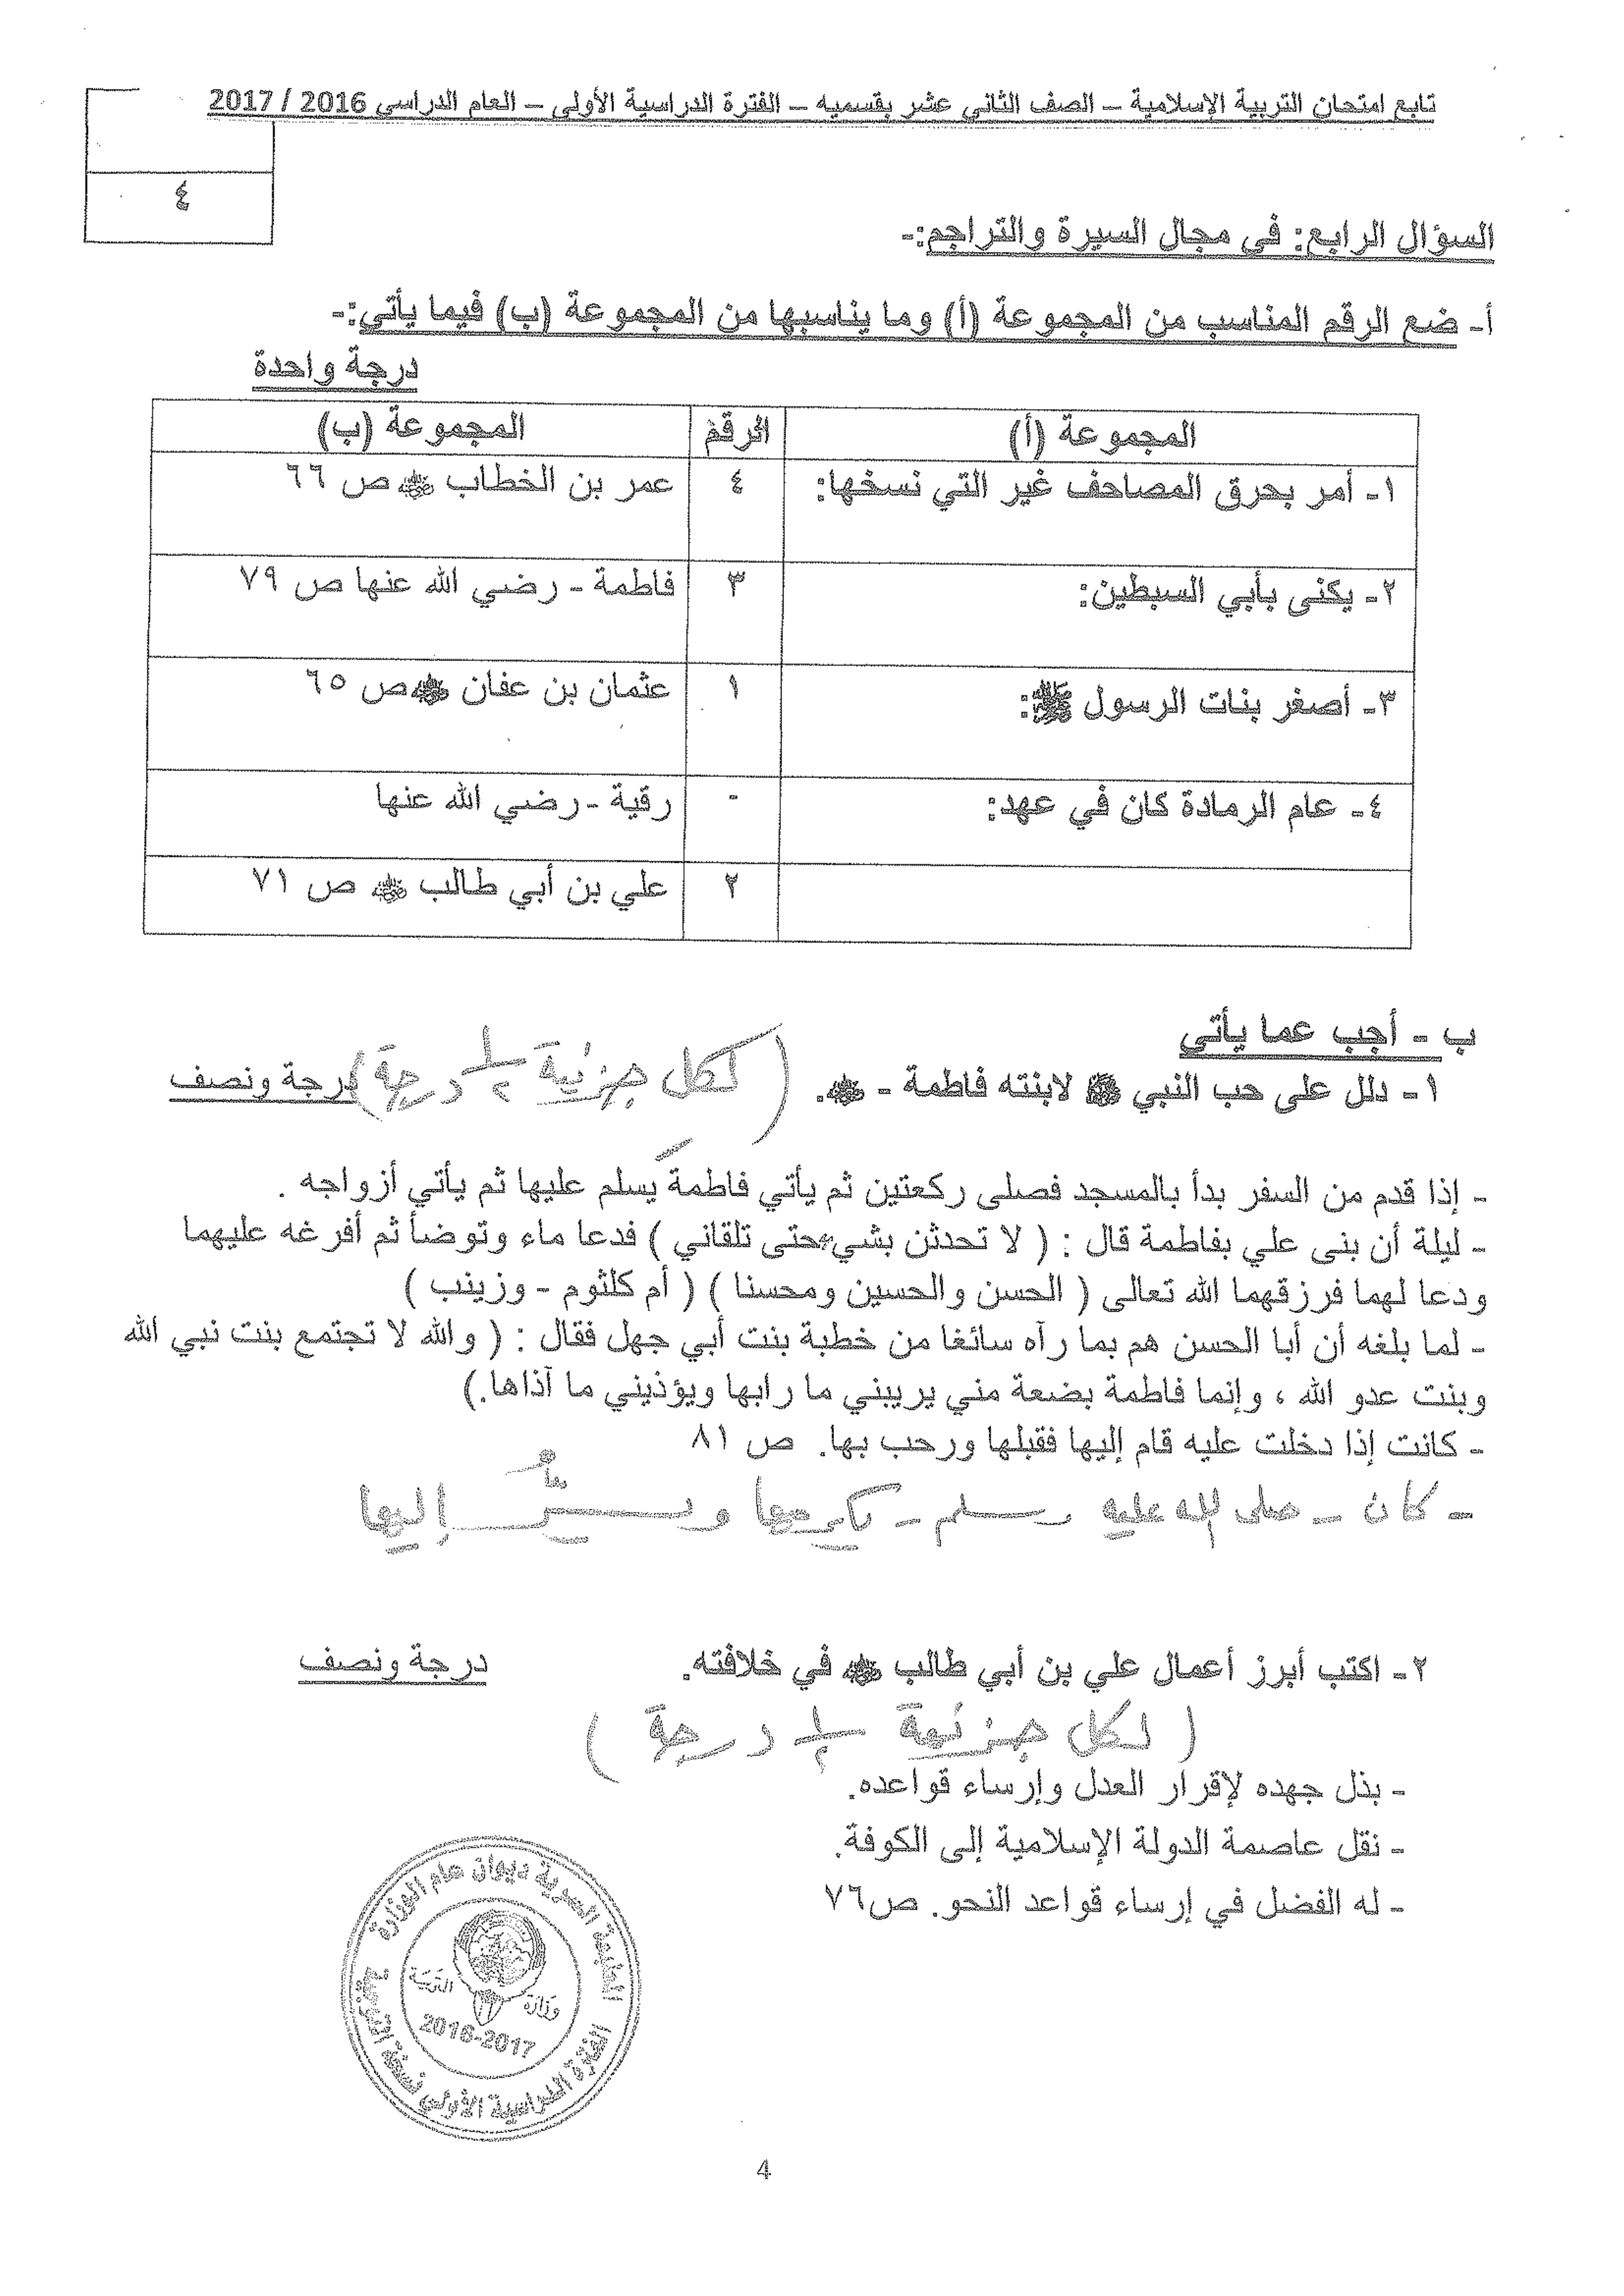 تابع امتحان التربية الإسلامية – الصف الثاني عشر بقسميه – الفترة الدراسية الأولى – العام الدراسي 2016 / 2017
٤
السؤال الرابع: في مجال السيرة والتراجم:-
أ- ضع الرقم المناسب من المجموعة (أ) وما يناسبها من المجموعة (ب) فيما يأتي:-
درجة واحدة
المجموعة (أ) الرقم المجموعة (ب)
١- أمر بحرق المصاحف غير التي نسخها: ٤ عمر بن الخطاب ﷺ ص ٦٦
٢- يكنى بأبي السبطين: ٣ فاطمة - رضي الله عنها ص ٧٩
٣- أصغر بنات الرسول ﷺ: ١ عثمان بن عفان ص ٦٥
٤- عام الرمادة كان في عهد: - رقية - رضي الله عنها
٢ علي بن أبي طالب ص ٧١
ب - أجب عما يأتي
١- دلل على حب النبي ﷺ لابنته فاطمة - . ( لكل جزئية ١/٢ درجة ) درجة ونصف
- إذا قدم من السفر بدأ بالمسجد فصلى ركعتين ثم يأتي فاطمة يسلم عليها ثم يأتي أزواجه .
- ليلة أن بنى علي بفاطمة قال : ( لا تحدثن بشيء حتى تلقاني ) فدعا ماء وتوضأ ثم أفرغه عليهما
ودعا لهما فرزقهما الله تعالى ( الحسن والحسين ومحسنا ) ( أم كلثوم - وزينب )
- لما بلغه أن أبا الحسن هم بما رآه سائغا من خطبة بنت أبي جهل فقال : ( والله لا تجتمع بنت نبي الله
وبنت عدو الله ، وإنما فاطمة بضعة مني يريبني ما رابها ويؤذيني ما آذاها.)
- كانت إذا دخلت عليه قام إليها فقبلها ورحب بها. ص ٨١
- كان - صلى الله عليه وسلم - يكرمها ويسرُّ إليها
٢- اكتب أبرز أعمال علي بن أبي طالب في خلافته. درجة ونصف
( لكل جزئية ١/٢ درجة )
- بذل جهده لإقرار العدل وإرساء قواعده.
- نقل عاصمة الدولة الإسلامية إلى الكوفة.
- له الفضل في إرساء قواعد النحو. ص٧٦
ديوان عام الوزارة
وزارة التربية
2016-2017
الفترة الدراسية الأولى
4